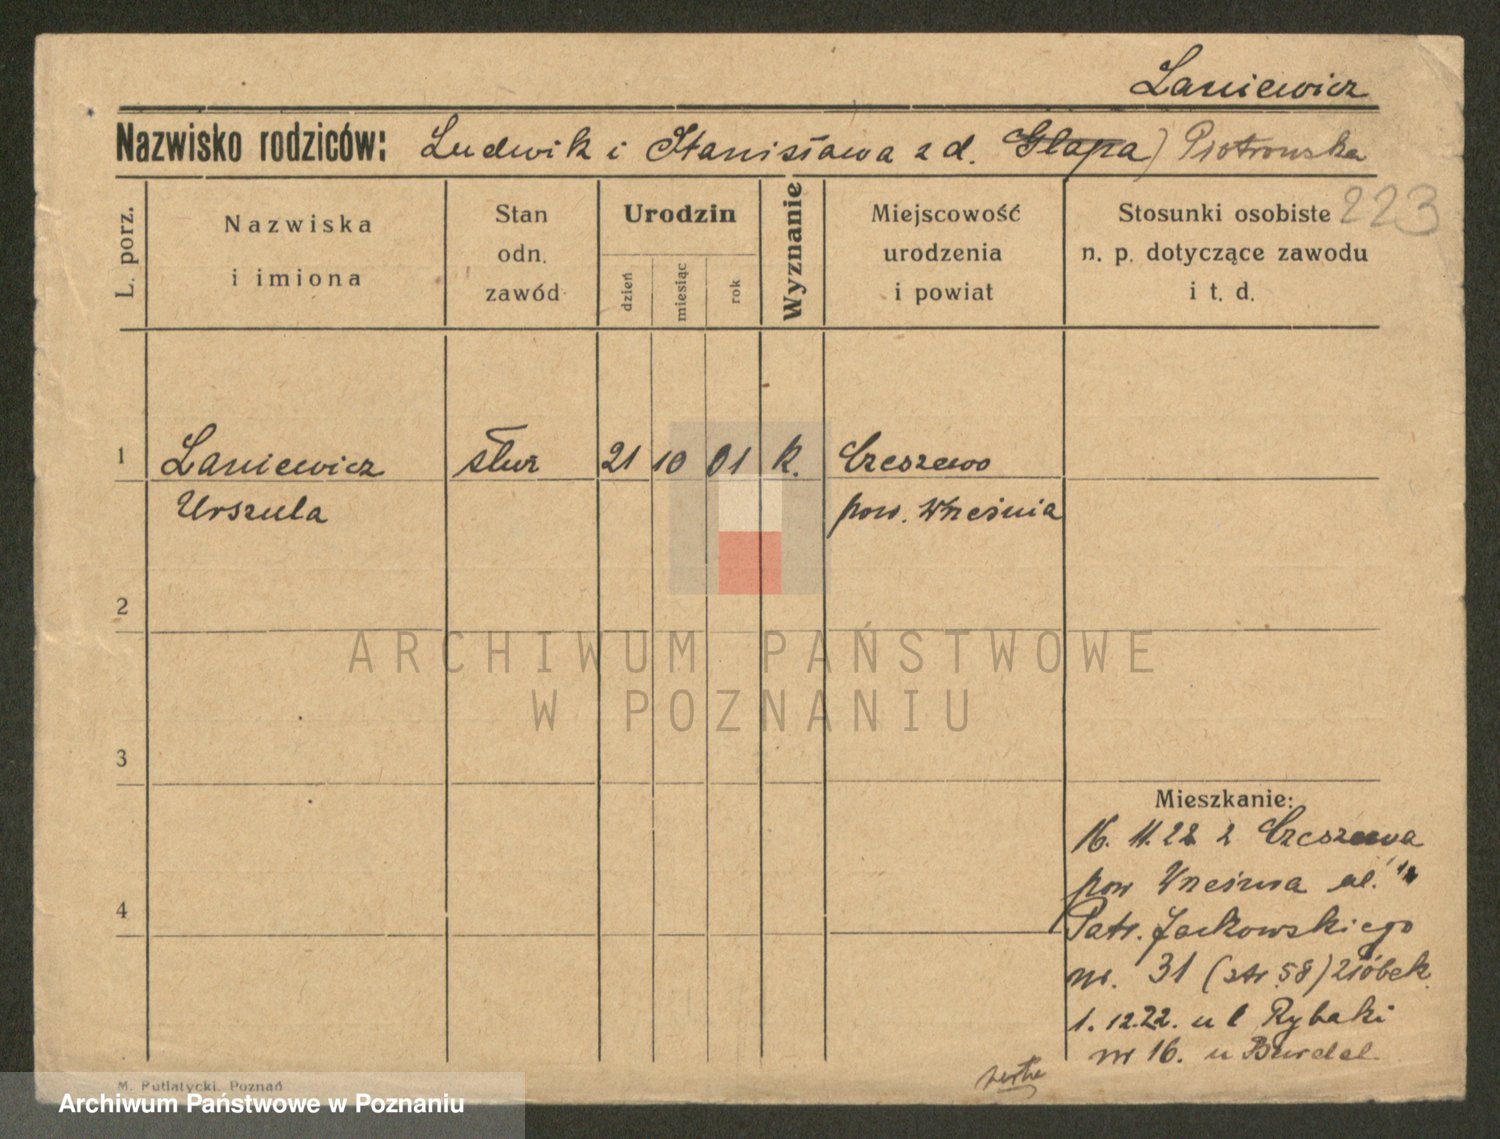 Laniewicz
Nazwisko rodziców: Ludwik i Stanisława z d. Glapa) Piotrowska
223
L. porz.
Nazwiska
i imiona
Stan
odn.
zawód
Urodzin
dzień
miesiąc
rok
Wyznanie
Miejscowość
urodzenia
i powiat
Stosunki osobiste
n. p. dotyczące zawodu
i t. d.
1 Laniewicz służ 21 10 01 k. Czeszewo
Urszula pow. Września
2
3
4
Mieszkanie:
16. 11. 22 z Czeszewa
pow Września ul.
Patr. Jackowskiego
nr. 31 (str. 58)
1. 12.22. ul Rybaki
nr 16. u
M. Putiatycki, Poznań
ARCHIWUM PAŃSTWOWE
W POZNANIU
Archiwum Państwowe w Poznaniu